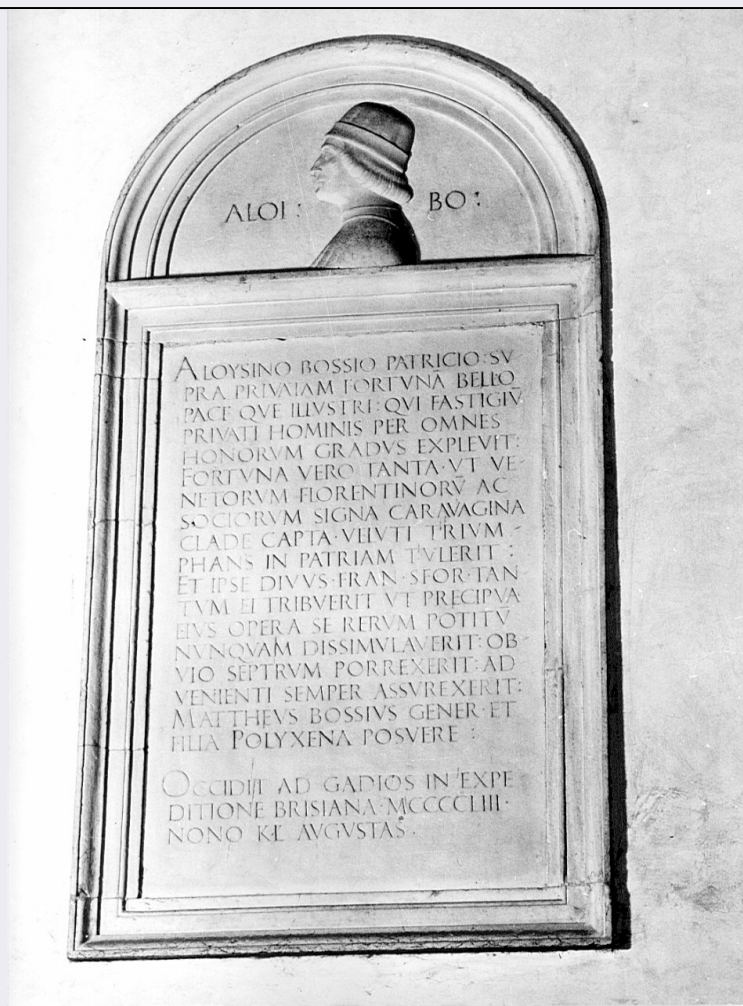 ALOI : BO :
ALOYSINO BOSSIO PATRICIO : SV
PRA PRIVATAM FORTVNĀ BELLO
PACE QVE ILLVSTRI : QVI FASTIGIV̄
PRIVATI HOMINIS PER OMNES
HONORVM GRADVS EXPLEVIT :
FORTVNA VERO TANTA · VT VE
NETORVM FLORENTINORV̄ AC
SOCIORVM SIGNA CARAVAGINA
CLADE CAPTA · VELVTI TRIVM
PHANS IN PATRIAM TVLERIT :
ET IPSE DIVVS · FRAN · SFOR · TAN
TVM EI TRIBVERIT VT PRECIPVA
EIVS OPERA SE RERVM POTITV̄
NVNQVAM DISSIMVLAVERIT : OB
VIO SEPTRVM PORREXERIT : AD
VENIENTI SEMPER ASSVREXERIT :
MATTHEVS BOSSIVS GENER · ET
FILIA POLYXENA POSVERE :
OCCIDIT AD GADIOS IN EXPE
DITIONE BRISIANA · MCCCCLIII ·
NONO KL AVGVSTAS ·